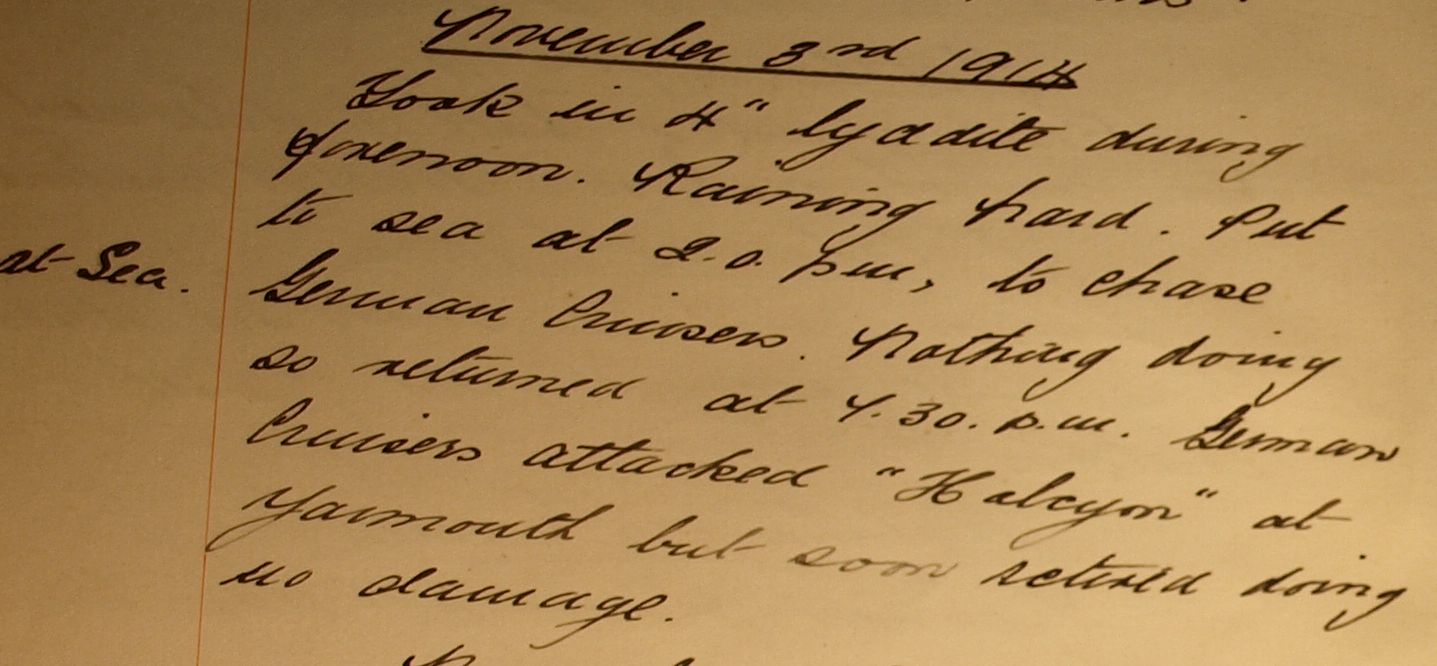 November 3rd 1914
Took in 4" lyddite during
forenoon. Raining hard. Put
to sea at 2.0. pm, to chase
at Sea.
German Cruisers. Nothing doing
so returned at 4.30. p.m. German
Cruisers attacked "Halcyon" at
Yarmouth but soon retired doing
no damage.